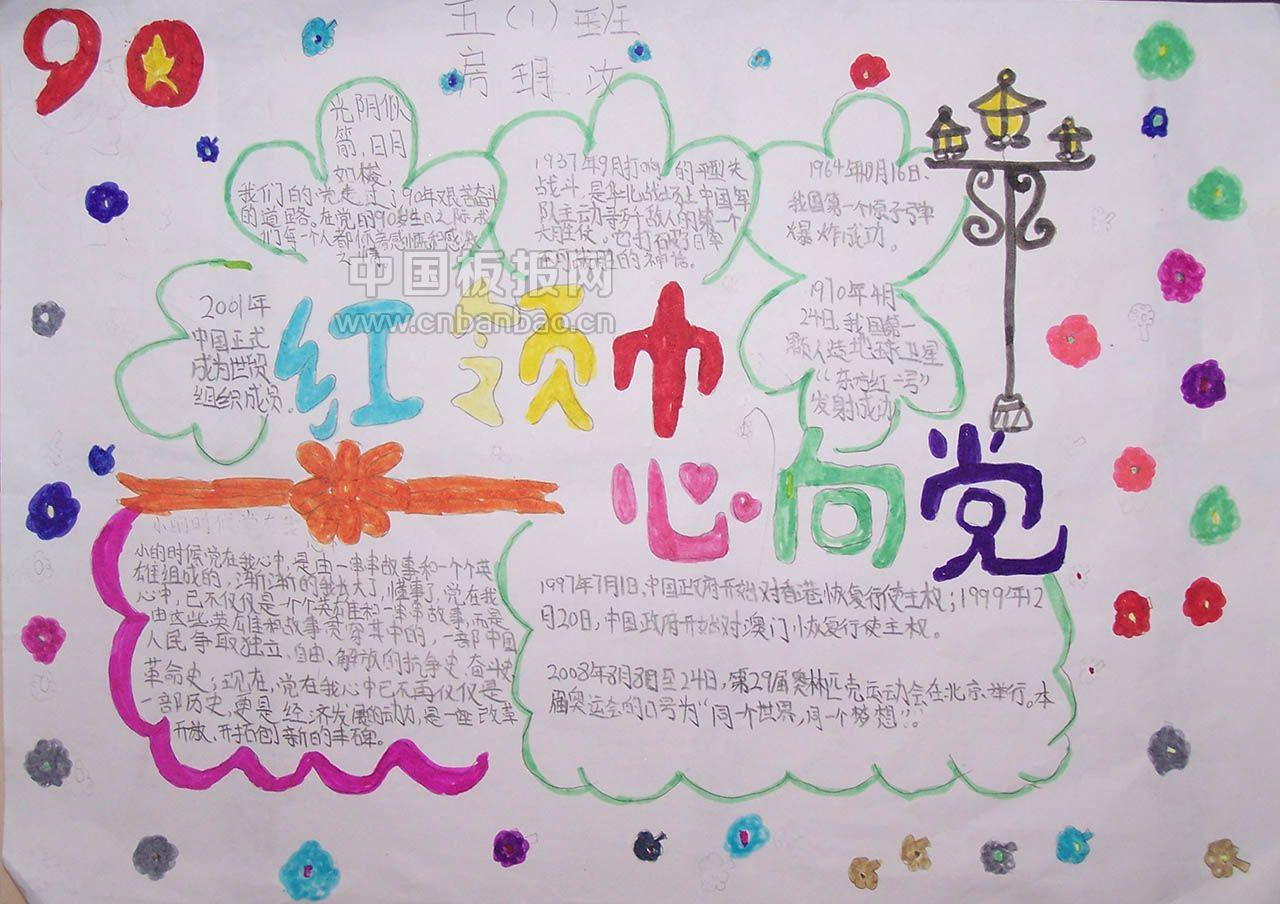 90
五（1）班
房玥汝
光阴似
箭，日月
如梭，
我们的党走过了90年艰苦奋斗
的道路。在党的90生日之际我
们每一个人都
之情。
1937年9月打响的平型关
战斗，是华北战场上中国军
队主动寻歼敌人的第一个
大胜仗。它打破了日军
不可战胜的神话。
1964年10月16日
我国第一个原子弹
爆炸成功。
1970年4月
24日，我国第一
颗人造地球卫星
“东方红一号”
发射成功
2001年
中国正式
成为世贸
组织成员。
中国板报网
www.cnbanbao.cn
红领巾
心向党
小的时候党在
小的时候党在我心中，是由一串串故事和一个个英
雄组成的，渐渐的我长大了，懂事了，党在我
心中，已不仅仅是一个个英雄和一串串故事，而是
由这些英雄和故事贯穿其中的，一部中国
人民争取独立、自由、解放的抗争史、奋斗史
革命史；现在，党在我心中已不再仅仅是
一部历史，更是经济发展的动力，是一座改革
开放、开拓创新的丰碑。
1997年7月1日，中国政府开始对香港恢复行使主权；1999年12
月20日，中国政府开始对澳门恢复行使主权。
2008年8月8日至24日，第29届奥林匹克运动会在北京举行。本
届奥运会的口号为“同一个世界，同一个梦想”。